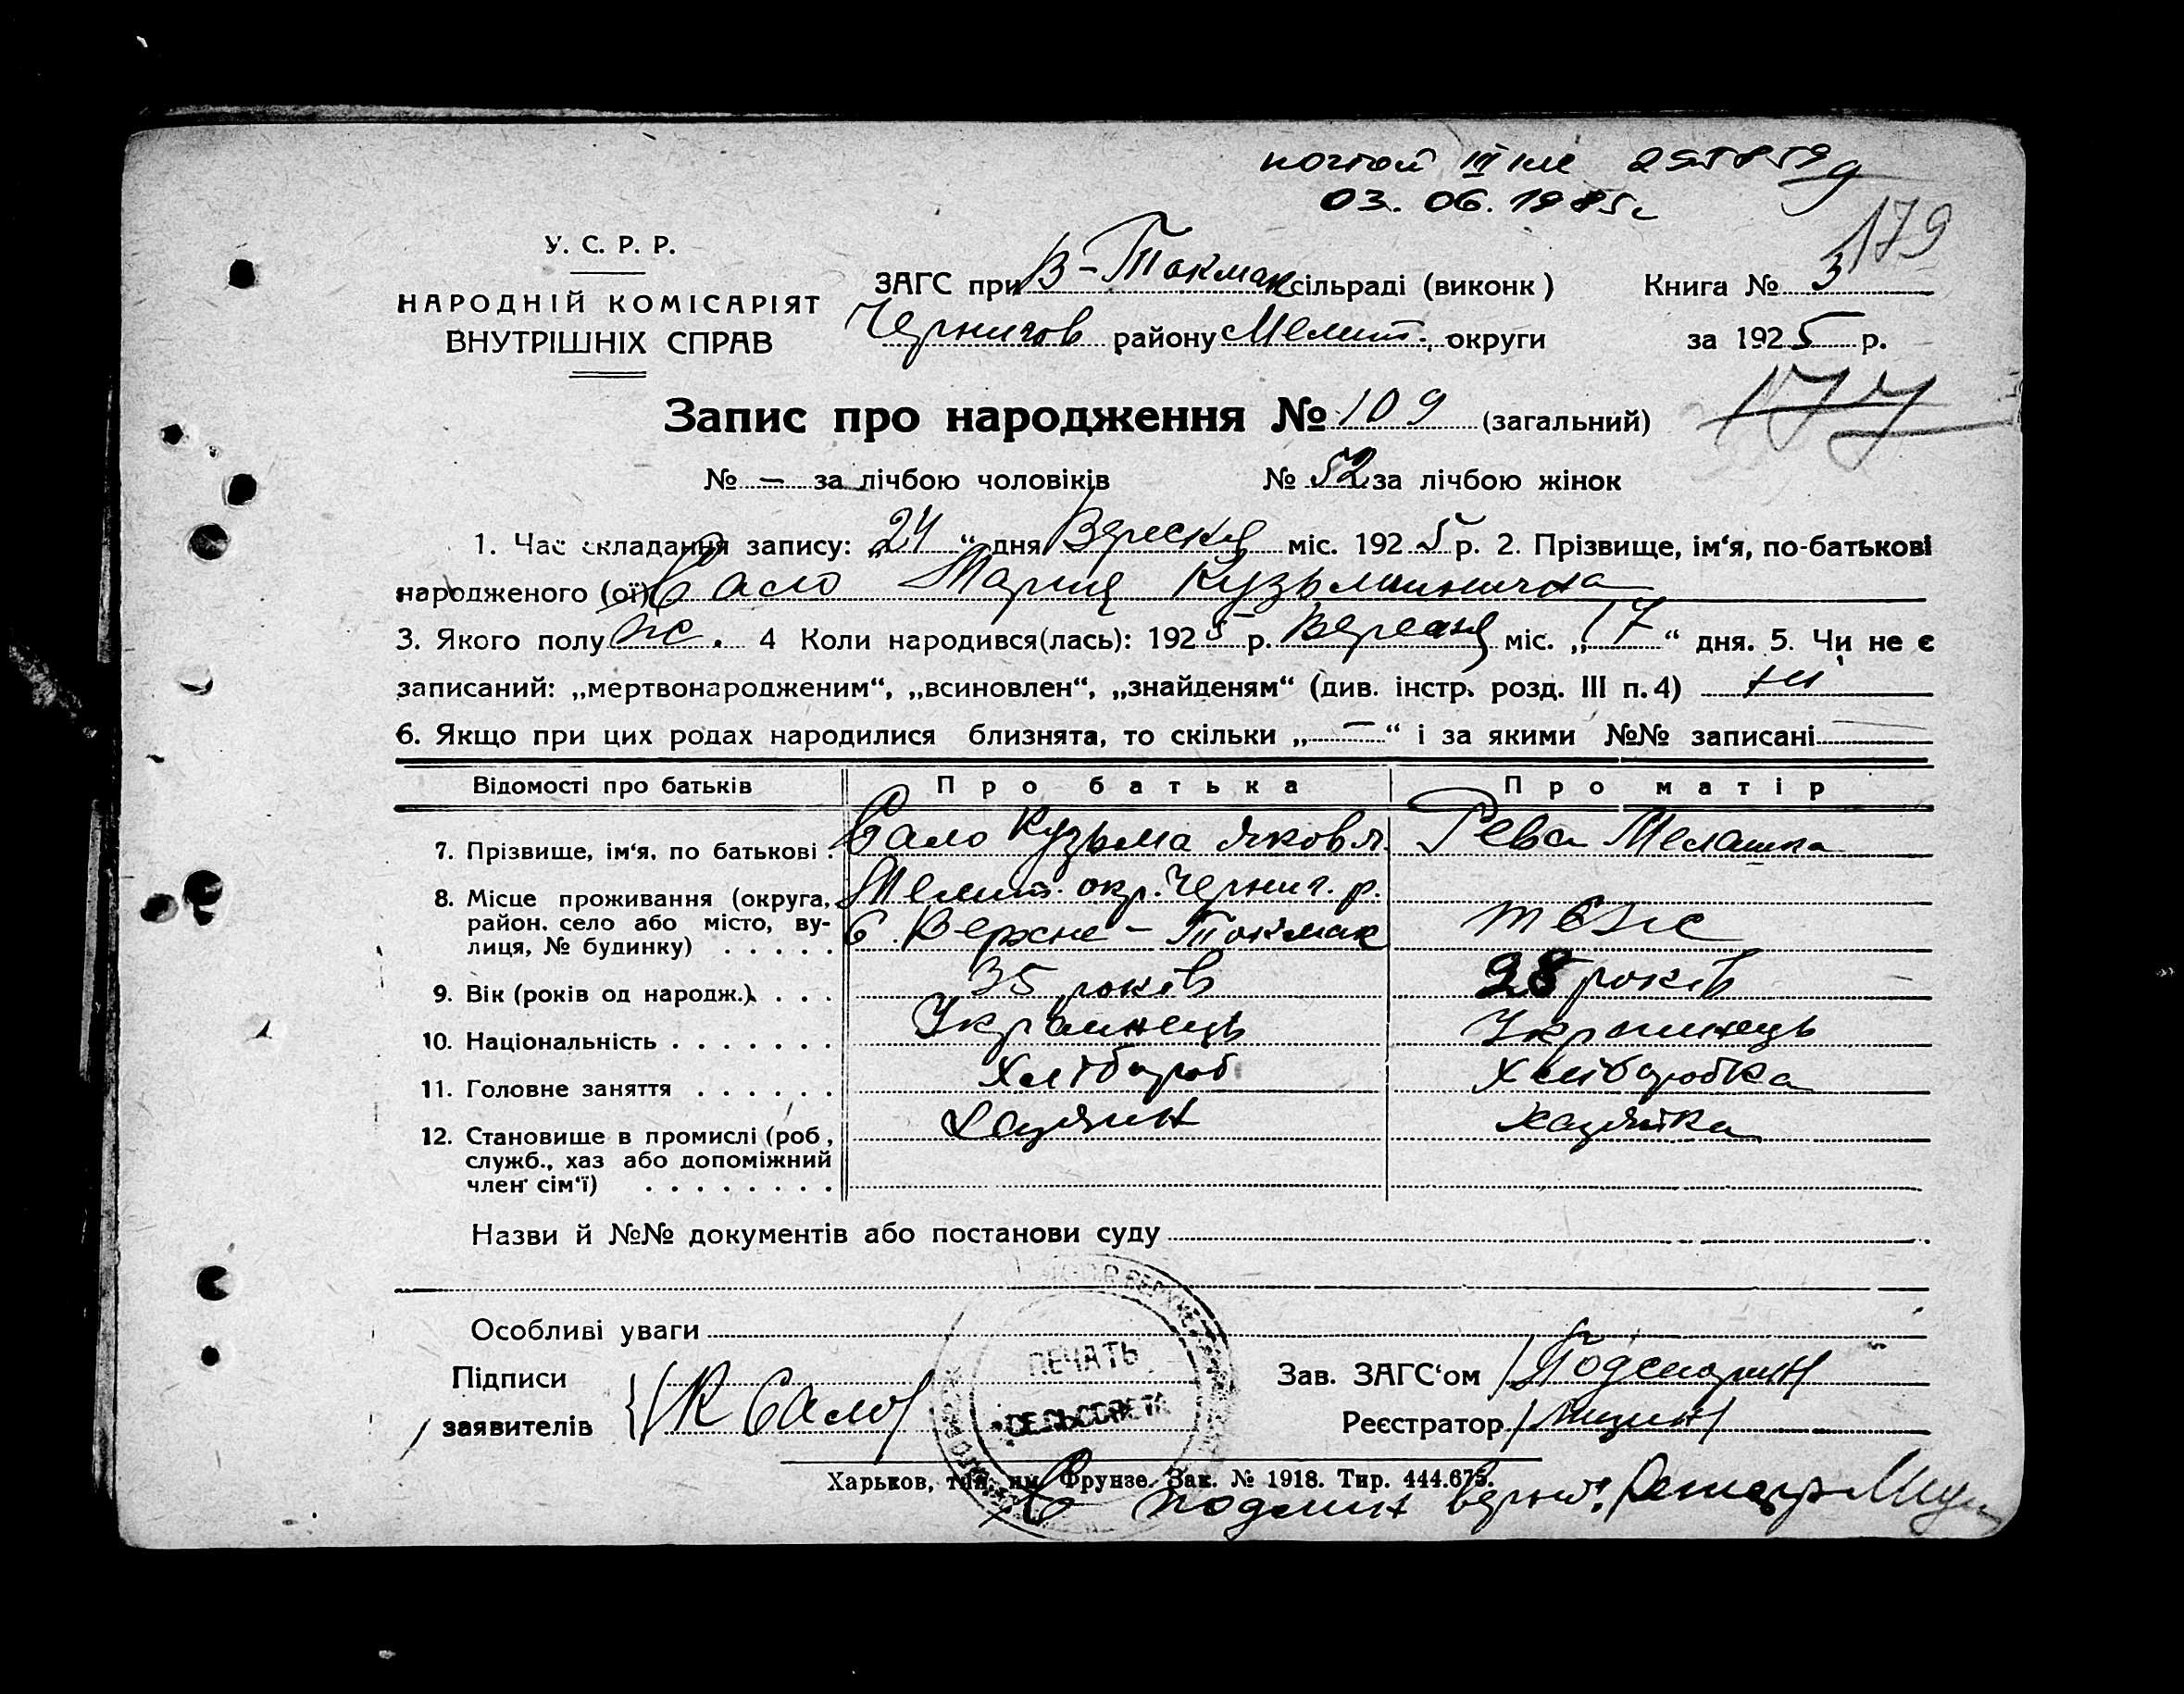 03. 06. 1985г
179
У. С. Р. Р.
НАРОДНІЙ КОМІСАРІЯТ
ВНУТРІШНІХ СПРАВ
ЗАГС при В-Токмак сільраді (виконк)
Книга № 3
Чернигов району Мелит. округи
за 1925 р.
177
Запис про народження № 109 (загальний)
№ – за лічбою чоловіків № 52 за лічбою жінок
1. Час складання запису: „24“ дня Вересня міс. 1925 р. 2. Прізвище, ім‘я, по-батькові
народженого (ої) Сало Мария Кузьминична
3. Якого полу ж. 4 Коли народився(лась): 1925 р. Вересня міс. „17“ дня. 5. Чи не є
записаний: „мертвонародженим“, „всиновлен“, „знайденям“ (див. інстр. розд. III п. 4) ни
6. Якщо при цих родах народилися близнята, то скільки „—“ і за якими №№ записані —
Відомості про батьків Про батька Про матір
7. Прізвище, ім‘я, по батькові . Сало Кузьма Яковл. Рева Мелашка
8. Місце проживання (округа, Мелит. окр. Черниг. р.
район, село або місто, ву- С. Верхне-Токмак теж
лиця, № будинку) . . . . .
9. Вік (років од народж.) . . . 35 років 28 років
10. Національність . . . . . . . Українець Українець
11. Головне заняття . . . . . . Хлібороб Хліборобка
12. Становище в промислі (роб, Хазяин хазяйка
служб., хаз або допоміжний
член сім‘ї) . . . . . . . .
Назви й №№ документів або постанови суду
Особливі уваги
ПЕЧАТЬ
СЕЛЬСОВЕТА
Підписи
заявителів К Сало
Зав. ЗАГС‘ом
Реєстратор
Харьков, тип. им. Фрунзе. Зак. № 1918. Тир. 444.675.